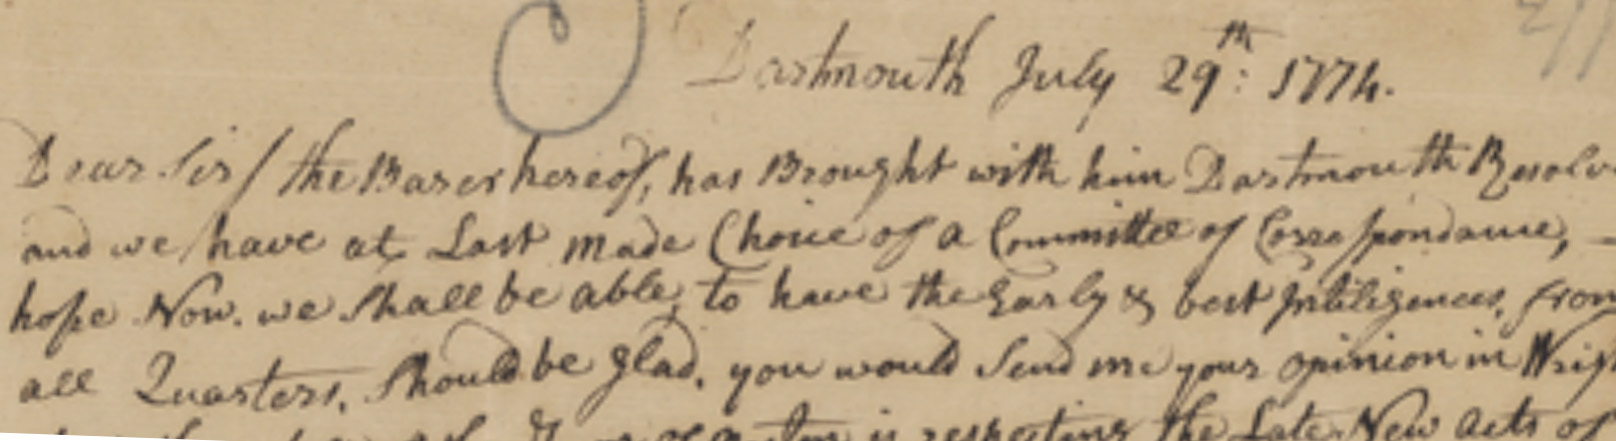 Dartmouth July 29th: 1774.
Dear Sir/ the Barer hereof, has Brought with him Dartmouth Resolv
and we have at Last made Choice of a Committee of Correspondance,
hope Now. we Shall be able, to have the Early & best Inteligences, from
all Quarters. Should be glad, you would Send me your opinion in Wri
respecting the Late New acts of